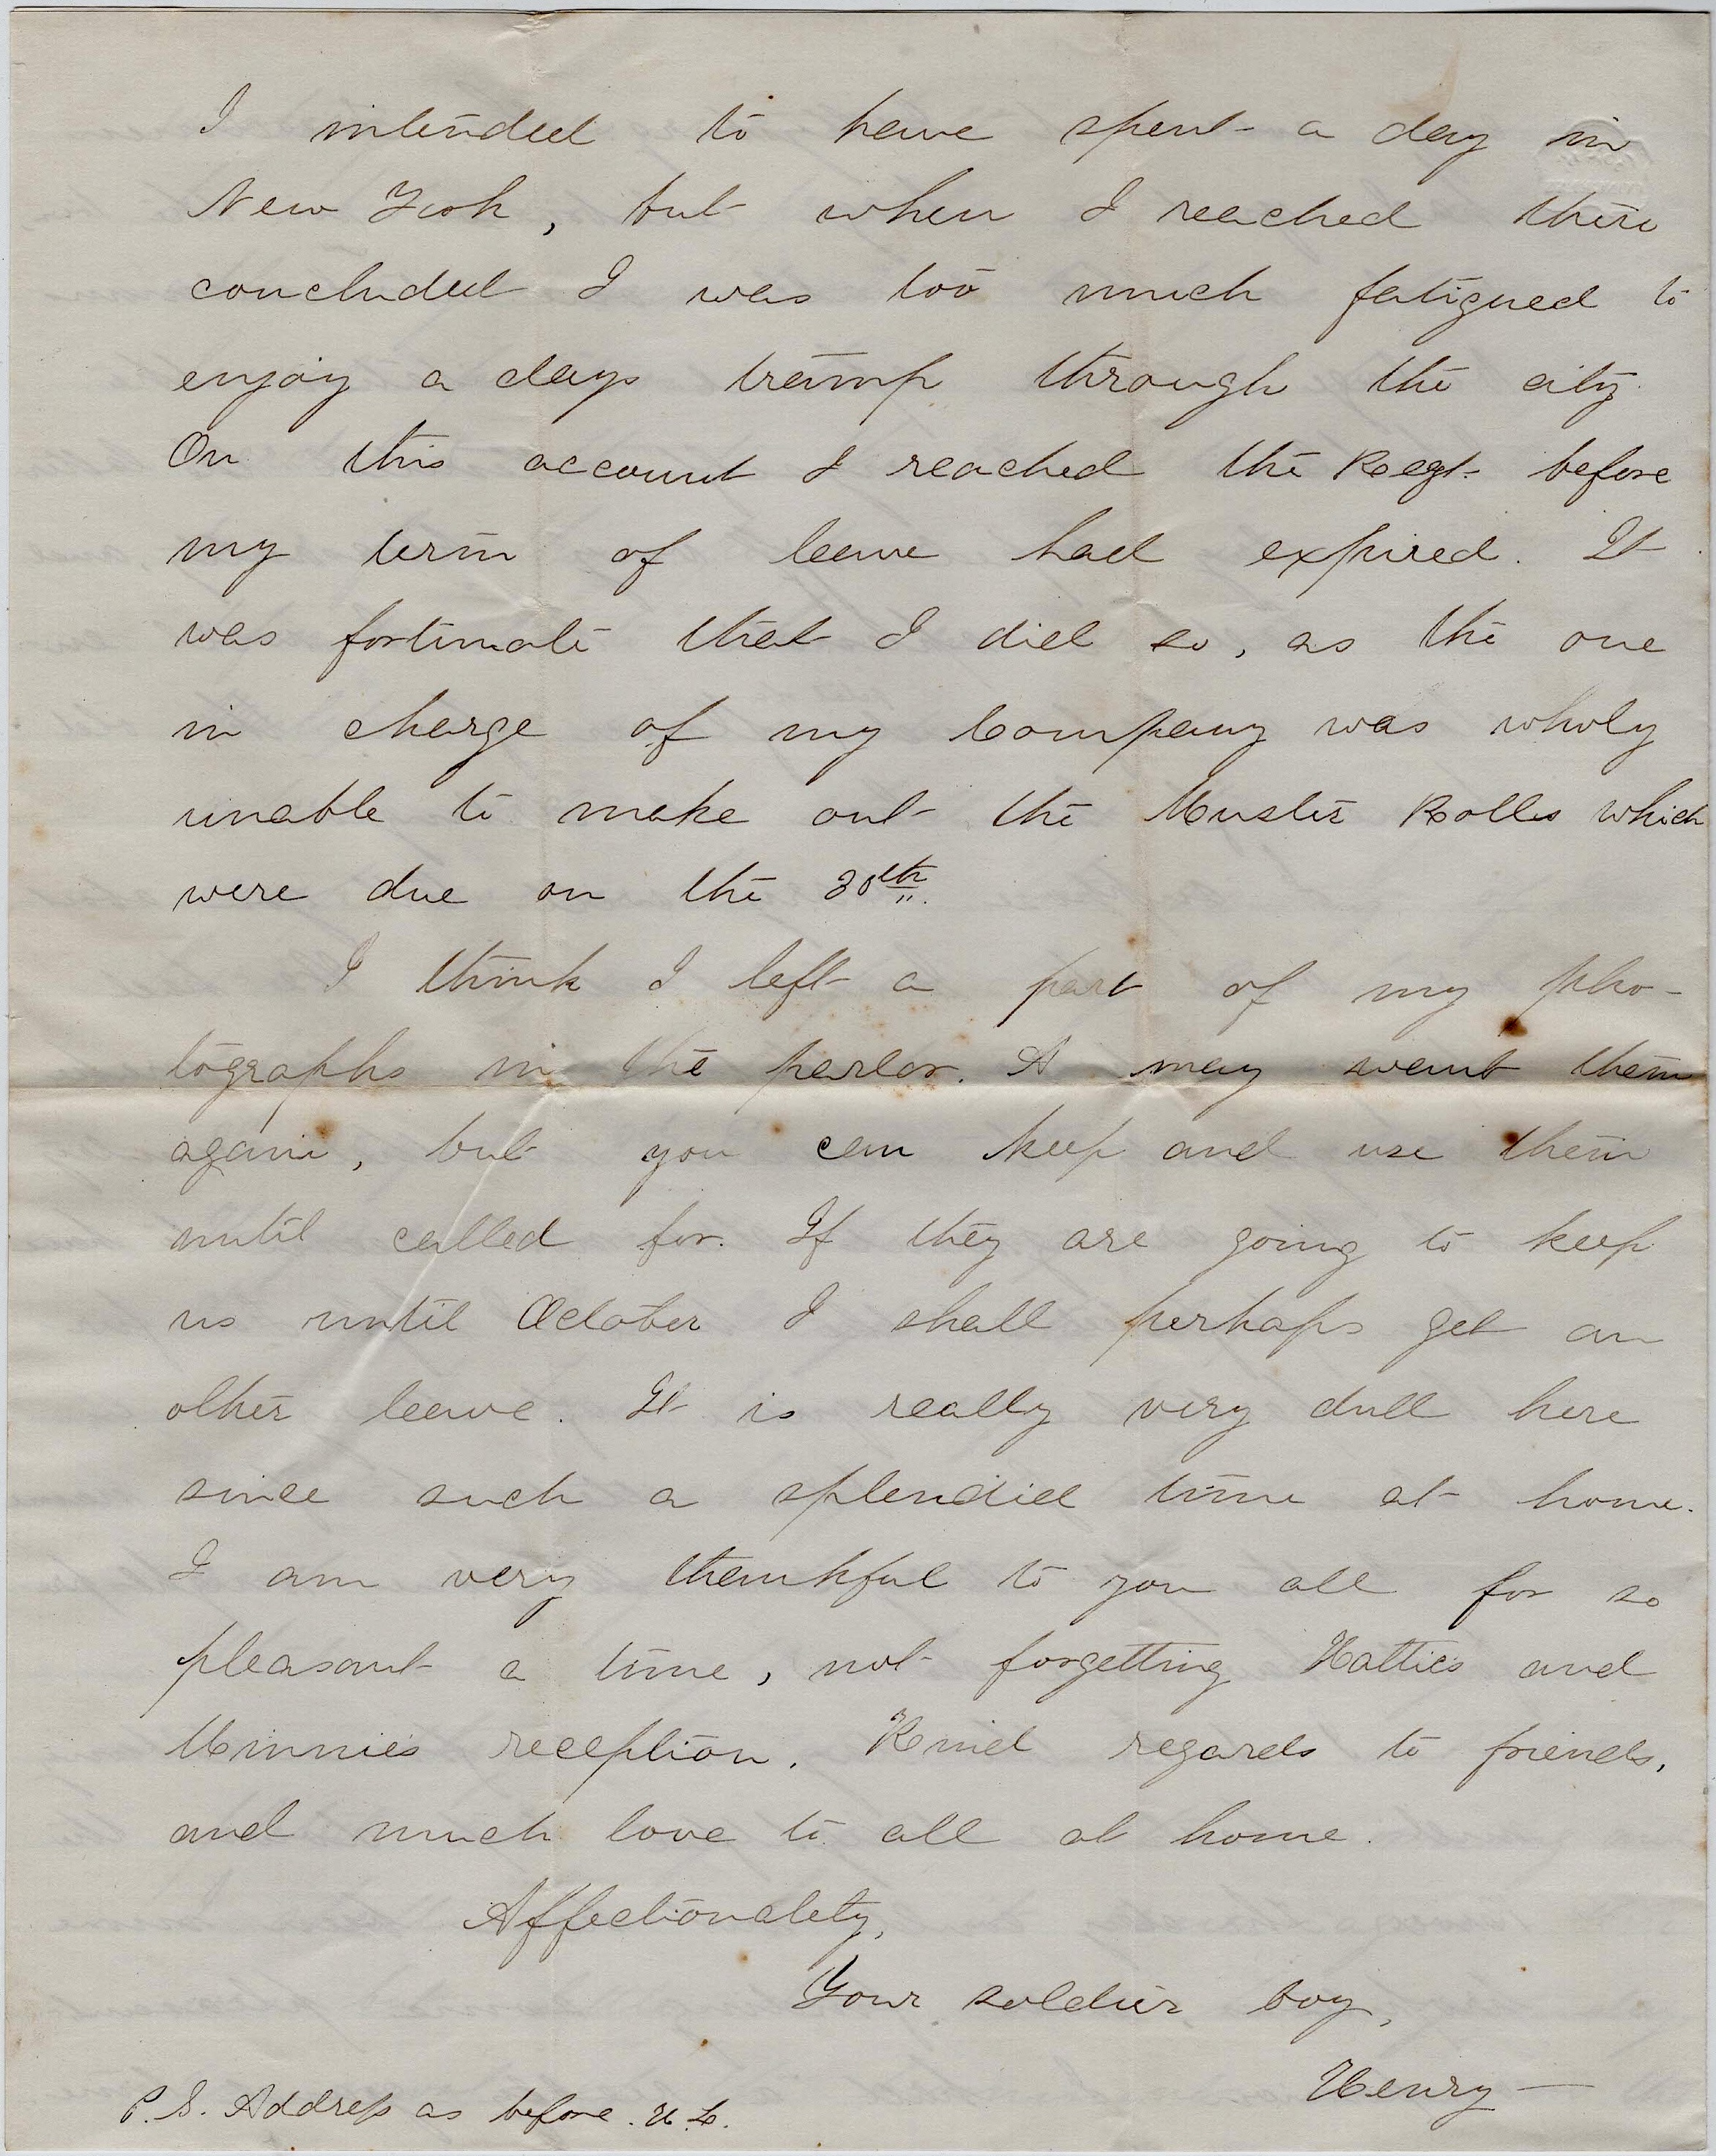 I intended to have spent a day in
New York, but when I reached there
concluded I was too much fatigued to
enjoy a days tramp through the city.
On this account I reached the Regt. before
my term of leave had expired. It
was fortunate that I did so, as the one
in charge of my Company was wholy
unable to make out the Muster Rolls which
were due on the 30th.
I think I left a part of my pho-
tographs in the parlor. I may want them
again, but you can keep and use them
until called for. If they are going to keep
us until October I shall perhaps get an
other leave. It is really very dull here
since such a splendid time at home.
I am very thankful to you all for so
pleasant a time, not forgetting Hatties and
Minnies reception. Kind regards to friends,
and much love to all at home.
Affectionately,
Your soldier boy,
Henry —
P.S. Address as before.